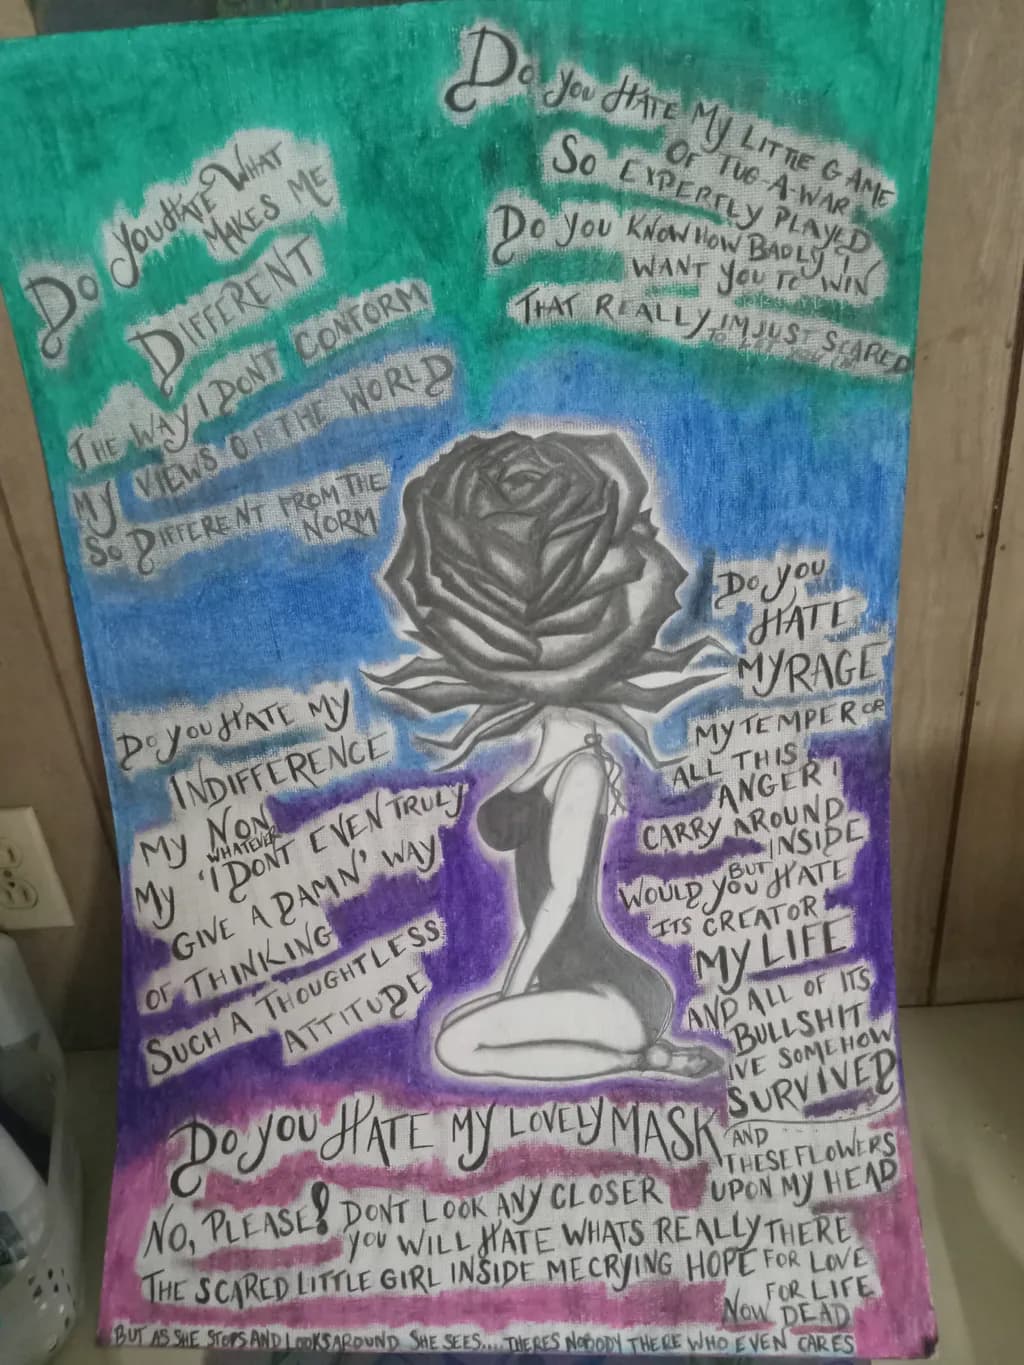 Do you HATE WHAT
MAKES ME
DIFFERENT
THE WAY I DONT CONFORM
MY VIEWS OF THE WORLD
SO DIFFERENT FROM THE
NORM
Do you HATE MY LITTLE GAME
OF TUG-A-WAR
SO EXPERTLY PLAYED
Do you KNOW HOW BADLY I
WANT YOU TO WIN
THAT REALLY IM JUST SCARED
Do you HATE MY
INDIFFERENCE
MY NON
WHATEVER
MY 'I DONT EVEN TRULY
GIVE A DAMN' WAY
OF THINKING
SUCH A THOUGHTLESS
ATTITUDE
Do you
HATE
MY RAGE
MY TEMPER OR
ALL THIS
ANGER I
CARRY AROUND
INSIDE
BUT
WOULD YOU HATE
ITS CREATOR
MY LIFE
AND ALL OF ITS
BULLSHIT
IVE SOMEHOW
SURVIVED
Do you HATE MY LOVELY MASK
AND
THESE FLOWERS
UPON MY HEAD
NO, PLEASE! DONT LOOK ANY CLOSER
YOU WILL HATE WHATS REALLY THERE
THE SCARED LITTLE GIRL INSIDE ME CRYING HOPE FOR LOVE
FOR LIFE
NOW DEAD
BUT AS SHE STOPS AND LOOKS AROUND SHE SEES.... THERES NOBODY THERE WHO EVEN CARES